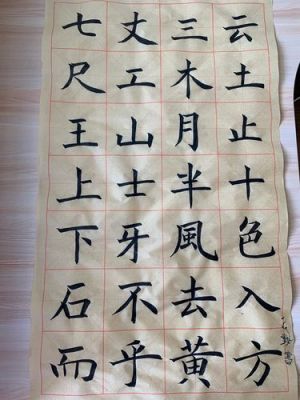 七丈三云
尺工木土
王山月止
上士半十
下牙風色
石不去入
而乎黄方